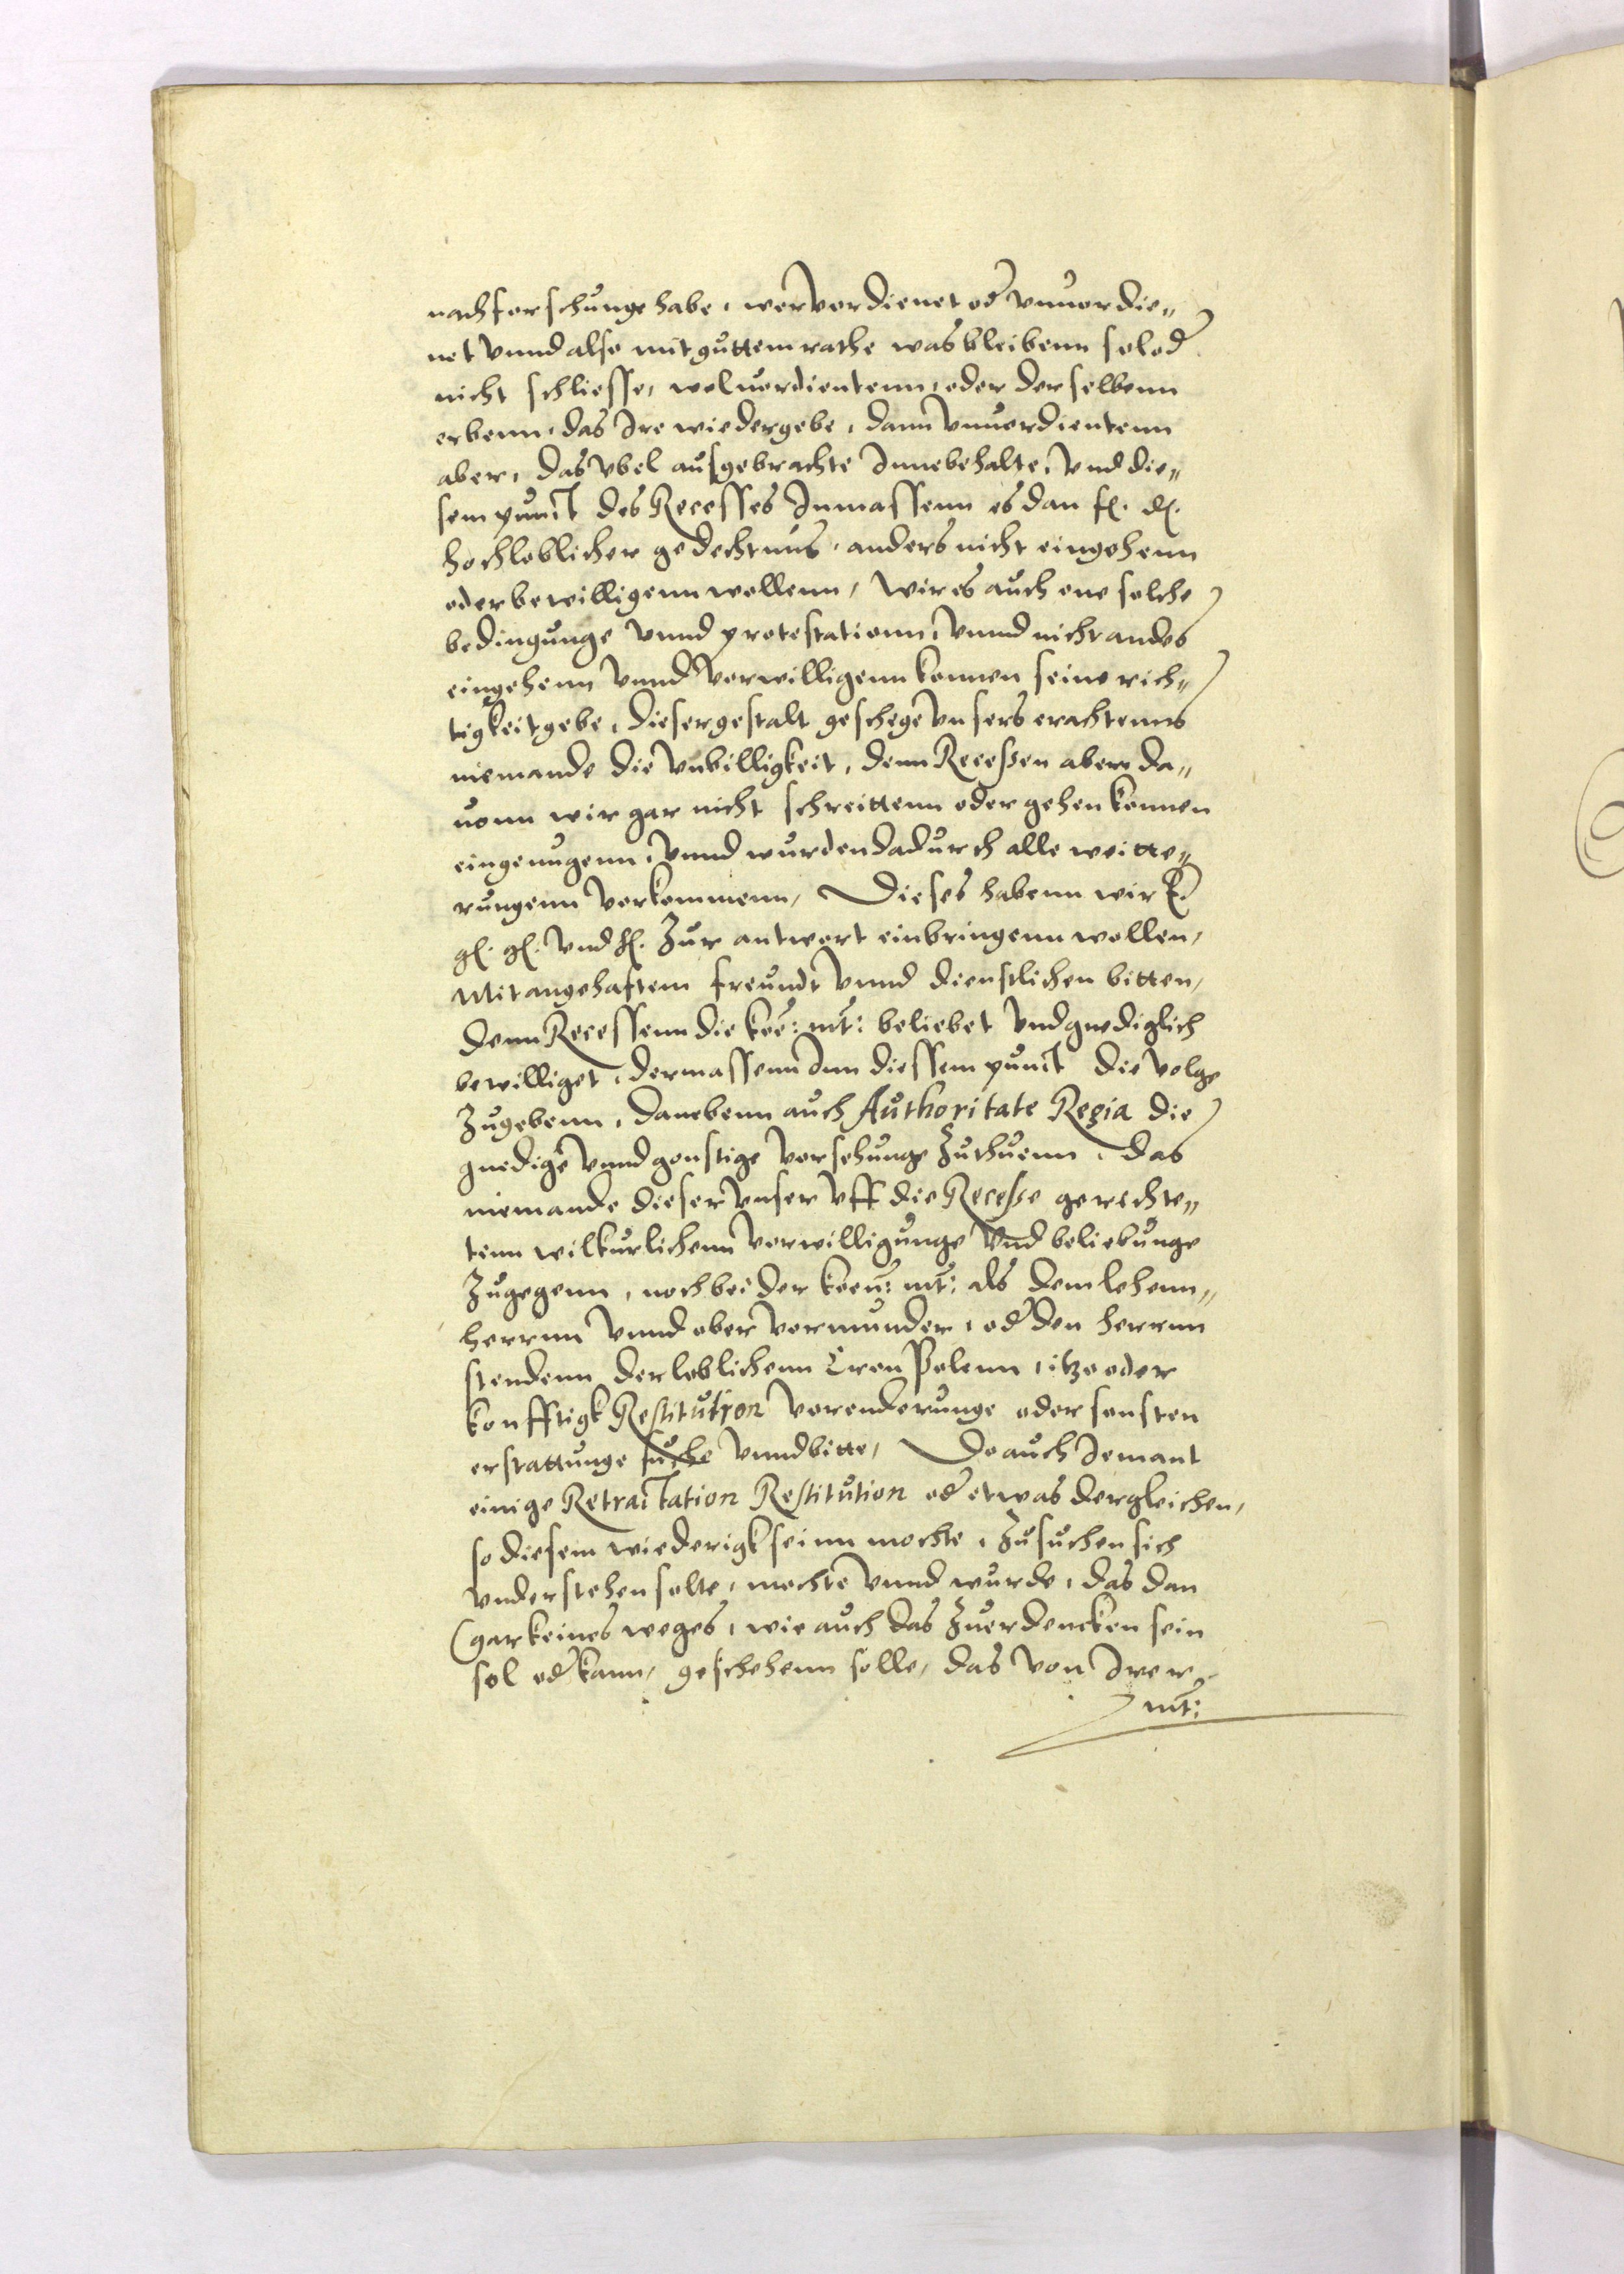 nachforschunge habe, wer verdienet od vnuerdie„
net vnnd also mit guttem rathe was bleibenn sol od
nicht schliesse, woluerdientenn, oder derselbenn
erbenn, das Ire wiedergebe, dann vnuerdientenn
aber, das vbel ausgebrachte Innebehalte, vnd die„
sem punct des Recesses Inmassenn es dan f. d.
hochloblicher gedechtnus, anders nicht eingehenn
oder bewilligenn wollenn, wir es auch one solche
bedingunge vnnd protestationn, vnnd nicht anders
eingehenn vnnd verwilligenn konnen seine rich„
tigkeit gebe, dieser gestalt geschege vnsers erachtenns
niemande die vnbilligkeit, denn Recessen aber da„
uonn wir gar nicht schreittenn oder gehen konnen
ein genugenn, vnnd wurden dadurch alle weitte„
rungenn verkommenn, Dieses habenn wir E.
g. g. vnd f. Zur antwort einbringenn wollen,
Mit angehaftem freundt vnnd dienstlichen bitten,
denn Recessenn die koe: mt: beliebet vnd gnediglich
bewilliget, dermassenn Inn diessem punct die volge
Zugebenn, danebenn auch Authoritate Regia die
gnedige vnnd gonstige versehunge Zuthuenn, das
niemande dieser vnser vff die Recesse gerichte„
tenn wilkurlichenn verwilligunge vnd beliebunge
Zugegenn, noch bei der koen: mt: als dem lehenn„
herrnn vnnd ober vormunder, od den herrnn
stendenn der loblichenn Cron Polenn, itzo oder
konfftigk Restitution verenderunge oder sonsten
erstattunge suche vnnd bitte, Do auch Iemant
einige Retractation Restitution od etwas dergleichen,
so diesem wiederigk seinn mochte, Zusuchen sich
vnderstehen solte, mochte vnnd wurde, das dan
(gar keines weges, wie auch das Zuerdencken sein
sol od kann, geschehenn solle, das von Irer
mt: